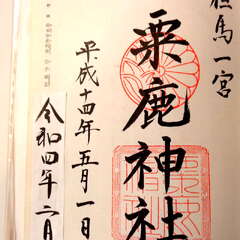 但馬一宮
粟鹿神社
平成十四年五月一日
令和四年二月